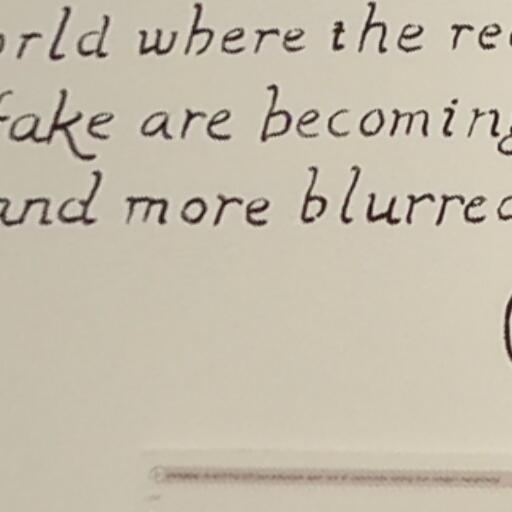 orld where the re
fake are becoming
and more blurred